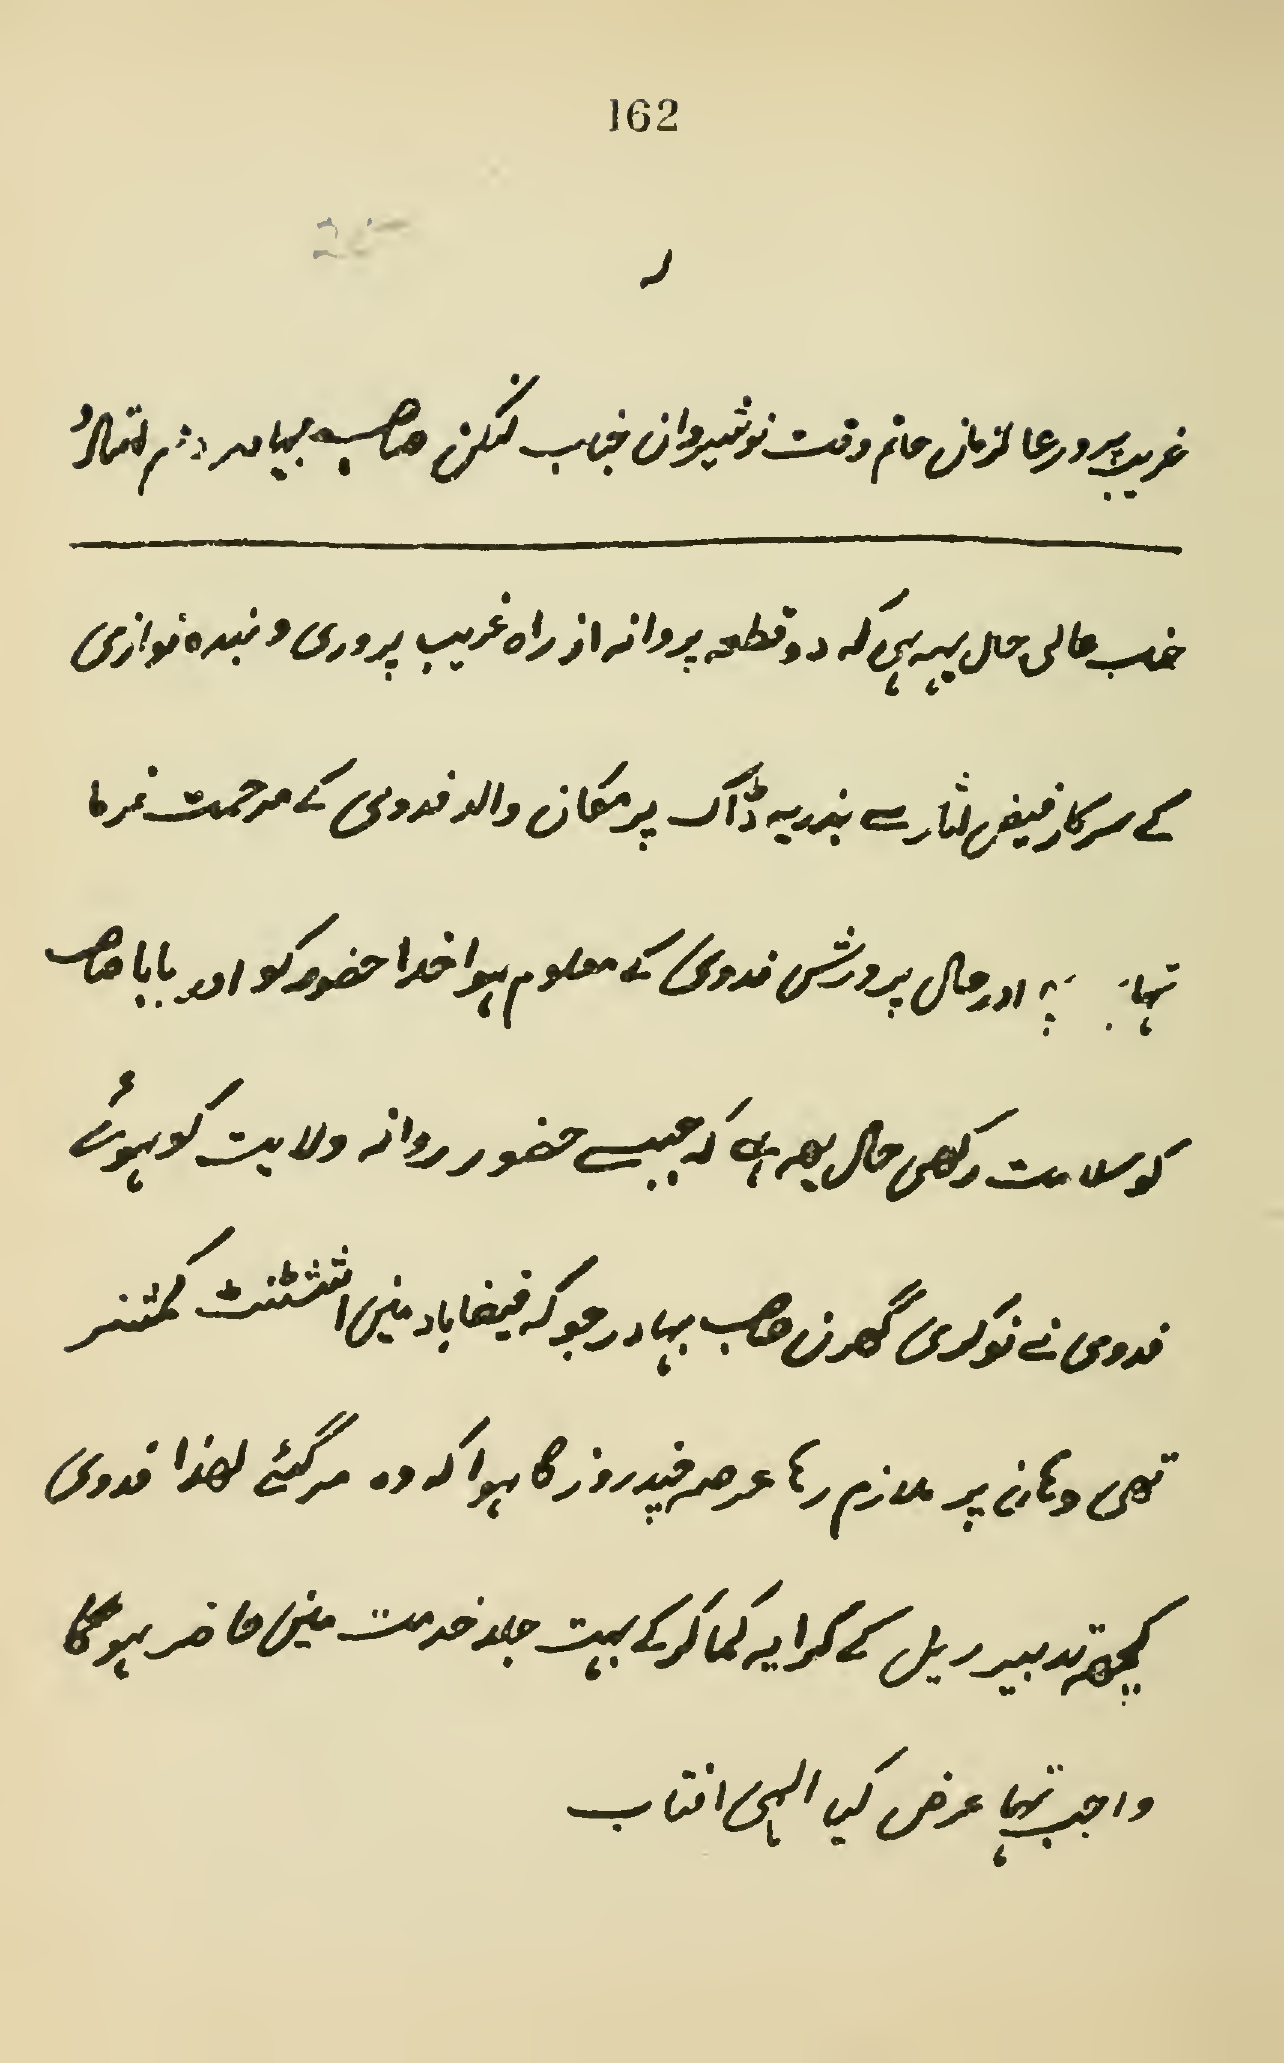 162
غریب پرور عا لزمان حاتم وقت نوشیروان جناب لنکن صاحب بہادر دام اقبالہ
جناب عالی حال یہہ ہی کہ دو قطعہ پروانہ از راہ غریب پروری و بندہ نوازی
کے سرکار فیض اثار سے بذریہ ڈاک پر مکان والد فدوی کے مرحمت فرما
تہا اور حال پرورشی فدوی کے معلوم ہوا خدا حضور کو اور بابا صاحب
کو سلامت رکھی حال یھہ ہے کہ جیسے حضور روانہ ولایت کو ہوئے
فدوی نے نوکری گھرن صاحب بہادر جو کہ فیضاباد مین اششٹنٹ کمشنر
تھی وہان پر ملازم رہا عرصہ چند روز کا ہوا کہ وہ مر گئے لھذا فدوی
کچھہ تدبیر ریل کے کرایہ کما کر کے بہت جلد خدمت مین حاضر ہوگا
واجب تہا عرض کیا الہی افتاب